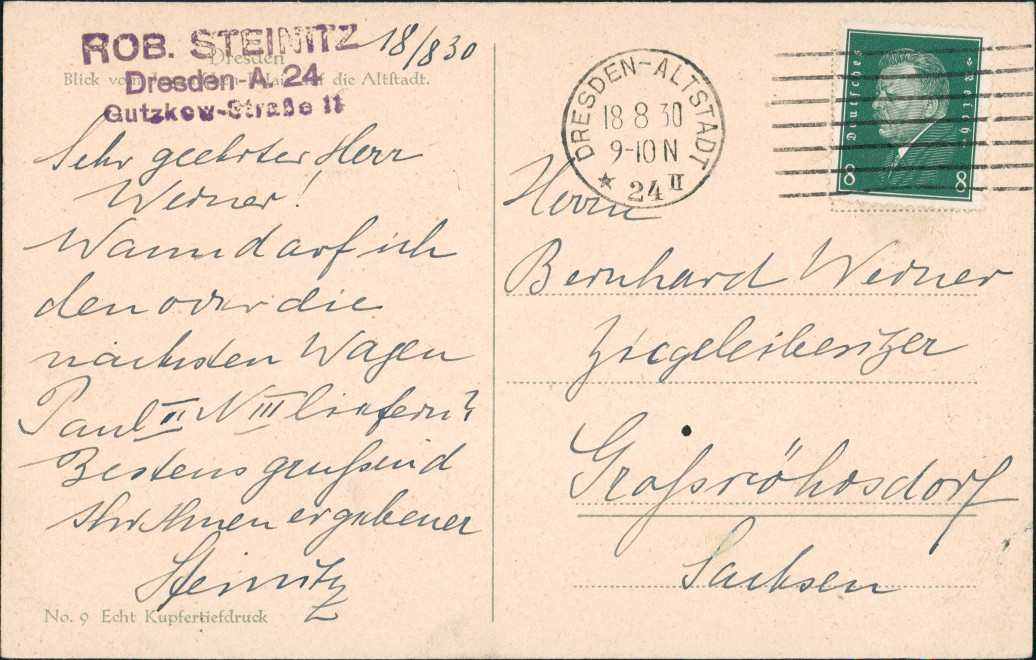 ROB. STEINITZ
Dresden-A. 24
Gutzkow-Straße 11
18/8 30
Dresden
Blick vom auf die Altstadt.
Sehr geehrter Herr
Werner!
Wann darf ich
den oder die
nächsten Wagen
Paul II N III liefern?
Bestens grüßend
Ihr Ihnen ergebener
Steinitz
No. 9 Echt Kupfertiefdruck
DRESDEN-ALTSTADT
18 8 30
9-10 N
* 24 II
Deutsches Reich
8 8
Herrn
Bernhard Werner
Ziegeleibesitzer
Großröhrsdorf
Sachsen